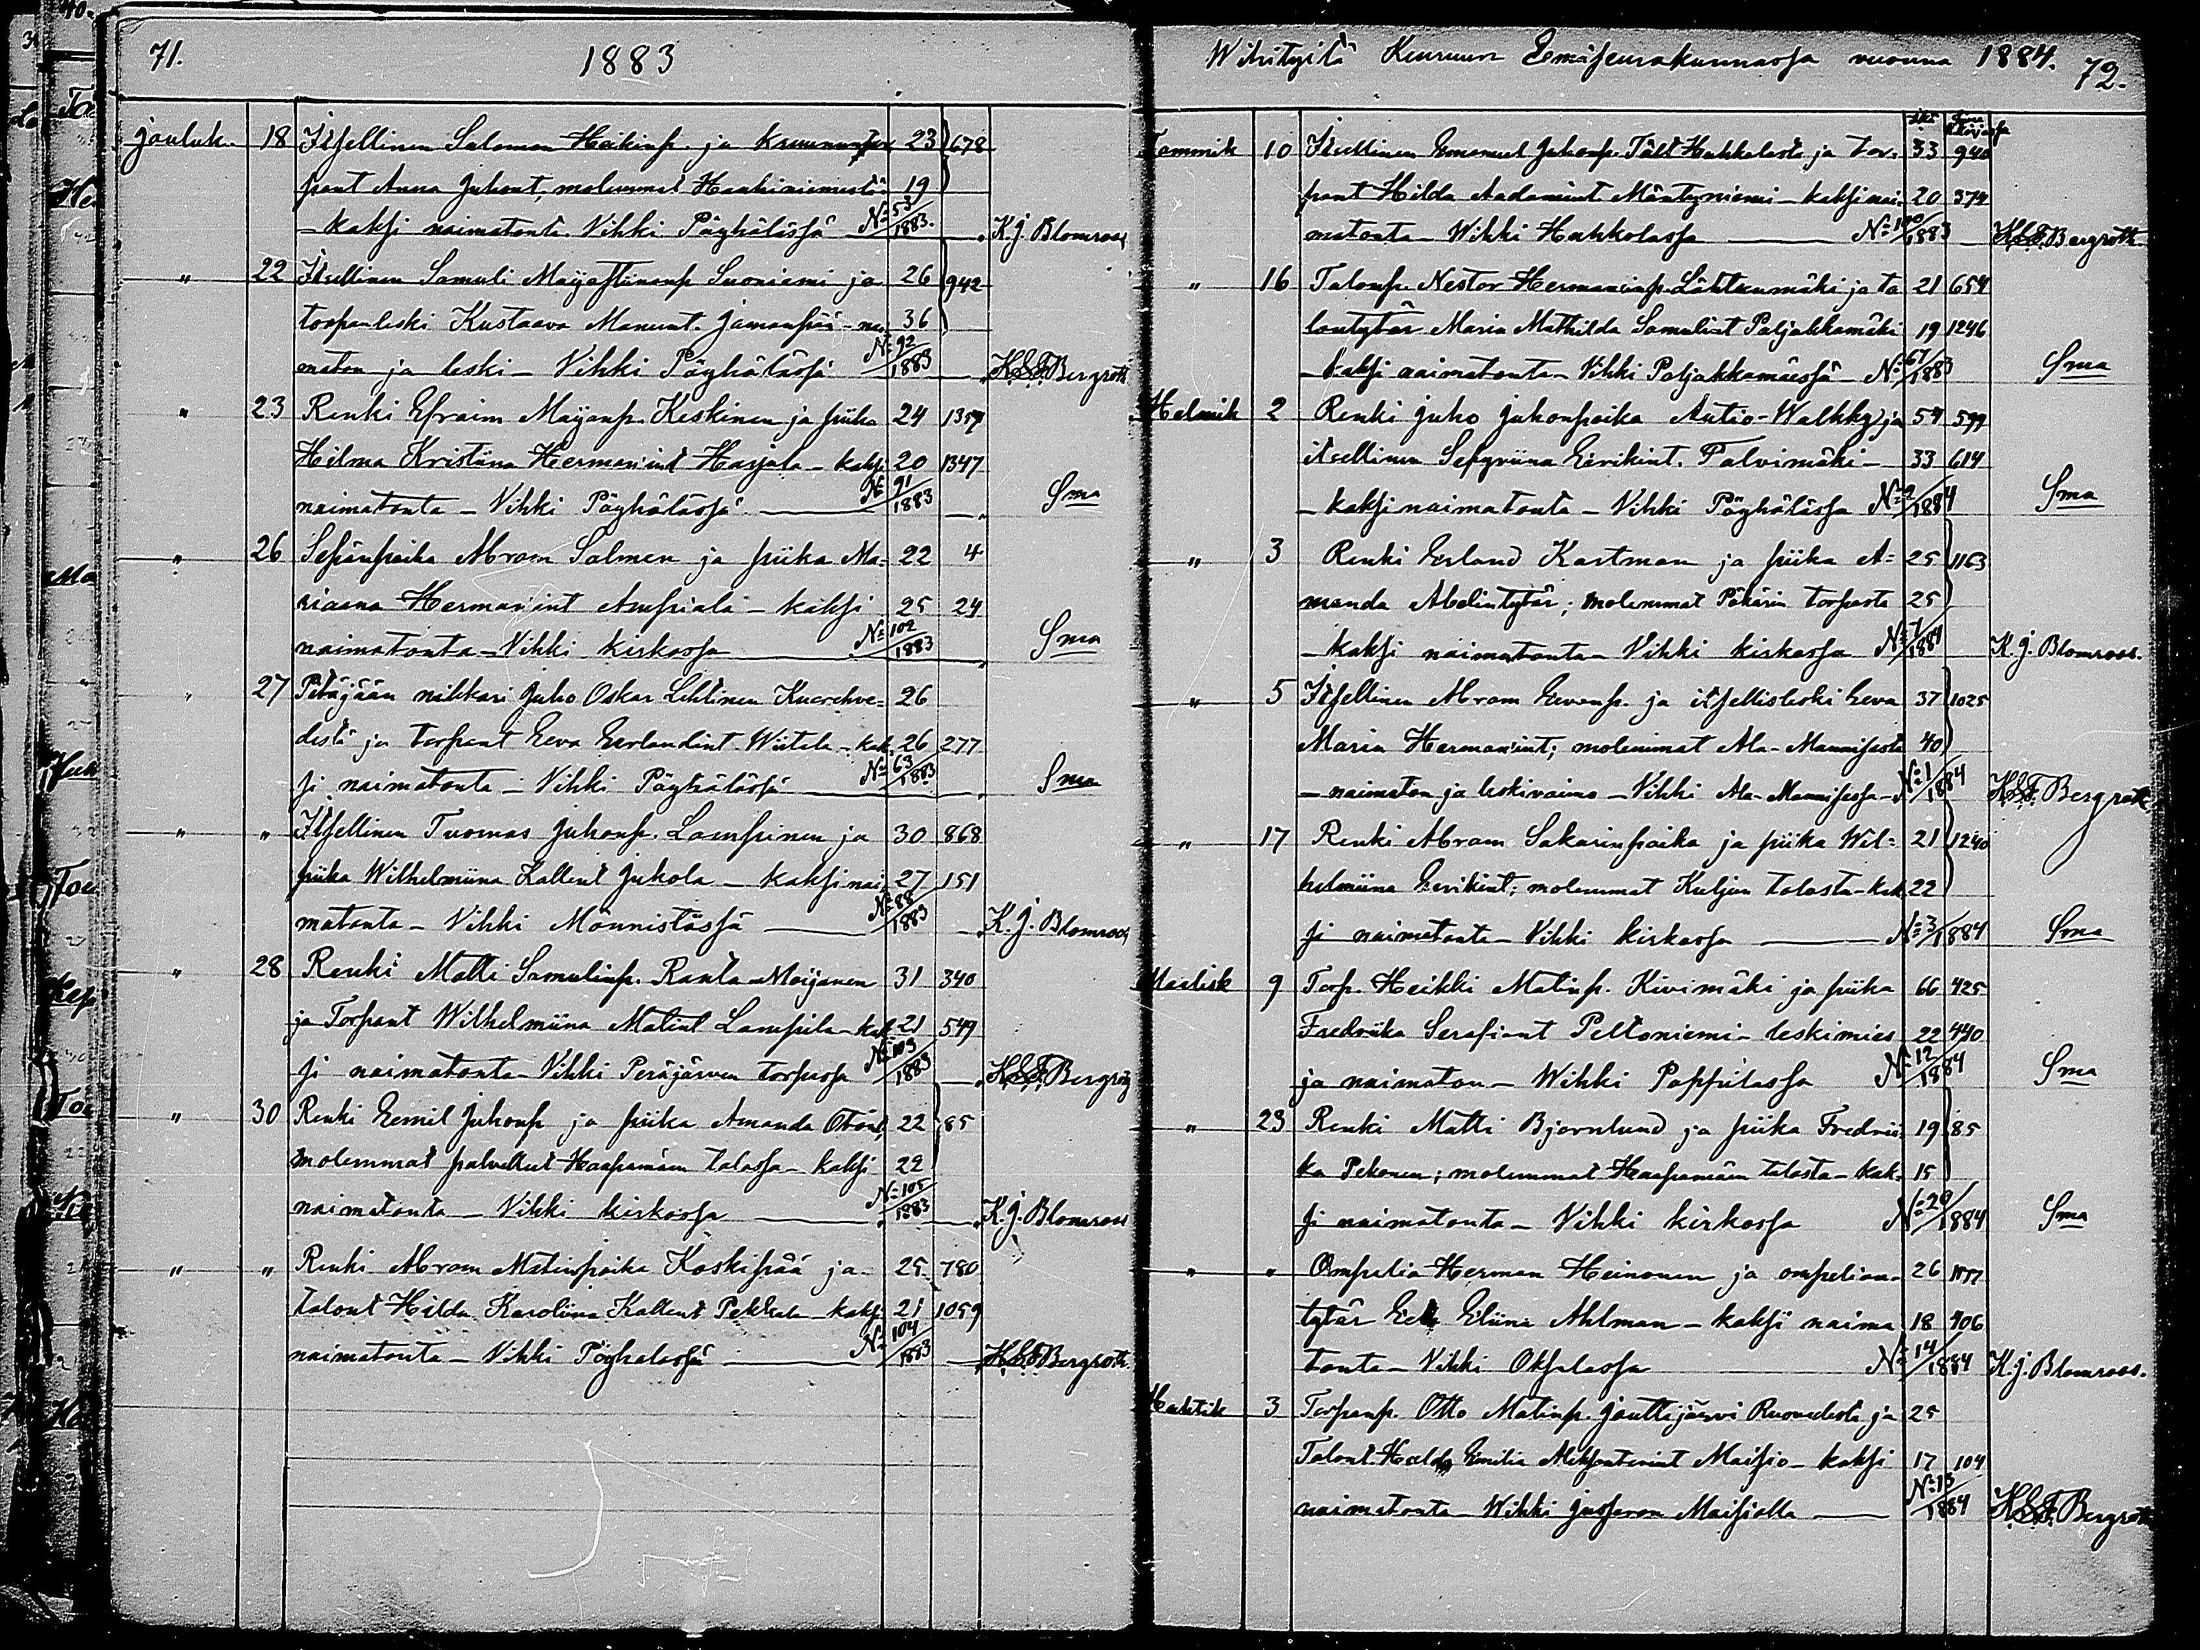 71.
1883
jouluk. 18 Itsellinen Salomon Heikinp. ja 23 678
Anna Juhont, molemmat Haukiniemestä 19
- kaksi naimatonta. Vihki Pöyhölässä No 53/1883. K. J. Blomroos
" 22 Itsellinen Samuli Maijastiinanp Suoniemi ja 26 942
torpanleski Kustaava Manunt. Jamanpää - nai- 36
maton ja leski - Vihki Pöyhölässä No 92/1883 K.S.F. Bergroth
" 23 Renki Efraim Maijanp. Keskinen ja piika 24 1357
Hilma Kristiina Herman'int Harjala - kaksi 20 1347
naimatonta - Vihki Pöyhölässä No 91/1883 Sma
" 26 Sepänpoika Abram Salmen ja piika Ma= 22 4
riaana Herman'int Ampiala - kaksi 25 24
naimatonta - Vihki kirkossa No 102/1883 Sma
" 27 Pitäjään nikkari Juho Oskar Lehtinen Kuorehve= 26
destä ja torpant Eeva Eerlandint Wiitala - kak. 26 277
si naimatonta - Vihki Pöyhölässä No 63/1883 Sma
" " Itsellinen Tuomas Juhonp. Lampinen ja 30 868
piika Wilhelmiina Kallent Juhola - kaksi nai. 27 151
matonta - Vihki Männistössä No 88/1883 K. J. Blomroos
" 28 Renki Matti Samulinp. Ranta-Moijanen 31 340
ja Torpant Wilhelmiina Matint Lampila - kak. 21 549
si naimatonta - Vihki Peräjärven torpassa No 103/1883 K.S.F. Bergroth
" 30 Renki Eemil Juhonp ja piika Amanda Otont, 22 85
molemmat palvelleet Haapamäen talossa - kaksi 22
naimatonta - Vihki kirkossa No 105/1883 K. J. Blomroos
" " Renki Abram Matinpoika Koskipää ja 25 780
talont Hilda Karoliina Kallent Pekkala - kaksi 21 1059
naimatonta - Vihki Pöyhölässä No 104/1883 K.S.F. Bergroth
Wihityitä Keuruun Emäseurakunnassa vuonna 1884. 72.
Tammik 10 Itsellinen Emanuel Juhonp. Tält Hahkolasta ja tor. 33 940
pant Hilda Aadamint Mäntyniemi - kaksi nai. 20 374
matonta - Wihki Hahkolassa No 100/1883 K.S.F. Bergroth
" 16 Talonp. Nestor Hermaninp. Lähteenmäki ja ta 21 654
lontytär Maria Mathilda Samulint Paljakkamäki 19 1246
- kaksi naimatonta - Vihki Paljakkamäessä - No 67/1883 Sma
Helmik 2 Renki Juho Juhonpoika Autio-Walkky ja 54 599
itsellinen Sefyriina Eerikint. Palvimäki - 33 614
- kaksi naimatonta - Vihki Pöyhölässä No 2/1884 Sma
" 3 Renki Erland Kartman ja piika A= 25 1163
manda Abelintytär; molemmat Päkärin torpasta 25
- kaksi naimatonta - Vihki kirkossa No 7/1884 K. J. Blomroos.
" 5 Itsellinen Abram Eevanp. ja itsellisleski Eeva 37 1025
Maria Herman'int; molemmat Ala-Mannisesta 40
- naimaton ja leskivaimo - Vihki Ala-Mannisessa - No 1/1884 K.S.F. Bergroth
" 17 Renki Abram Sakarinpoika ja piika Wil= 21 1240
helmiina Eerikint; molemmat Kuljun talosta - kak. 22
si naimatonta - Vihki kirkossa No 3/1884 Sma
Maalisk 9 Torp. Heikki Matinp. Kivimäki ja piika 66 425
Fredriika Serafiant Peltoniemi - leskimies 22 440
ja naimaton - Wihki Pappilassa No 12/1884 Sma
" 23 Renki Matti Bjornlund ja piika Fredrii 19 85
ka Pekonen; molemmat Haapamäen talosta - kak. 15
si naimatonta - Vihki kirkossa No 20/1884 Sma
" " Ompelia Herman Heinonen ja ompelian- 26
tytär Eliina Ahlman - kaksi naima 18 406
tonta - Vihki Oksalassa No 14/1884 K. J. Blomroos.
Huhtik 3 Torpanp. Otto Matinp. Jouttijärvi Ruovedestä ja 25
Talont Hulda Emilia Aleksanterint Maisio - kaksi 17 104
naimatonta - Wihki Jusseron Maisiolla No 13/1884 K.S.F. Bergroth